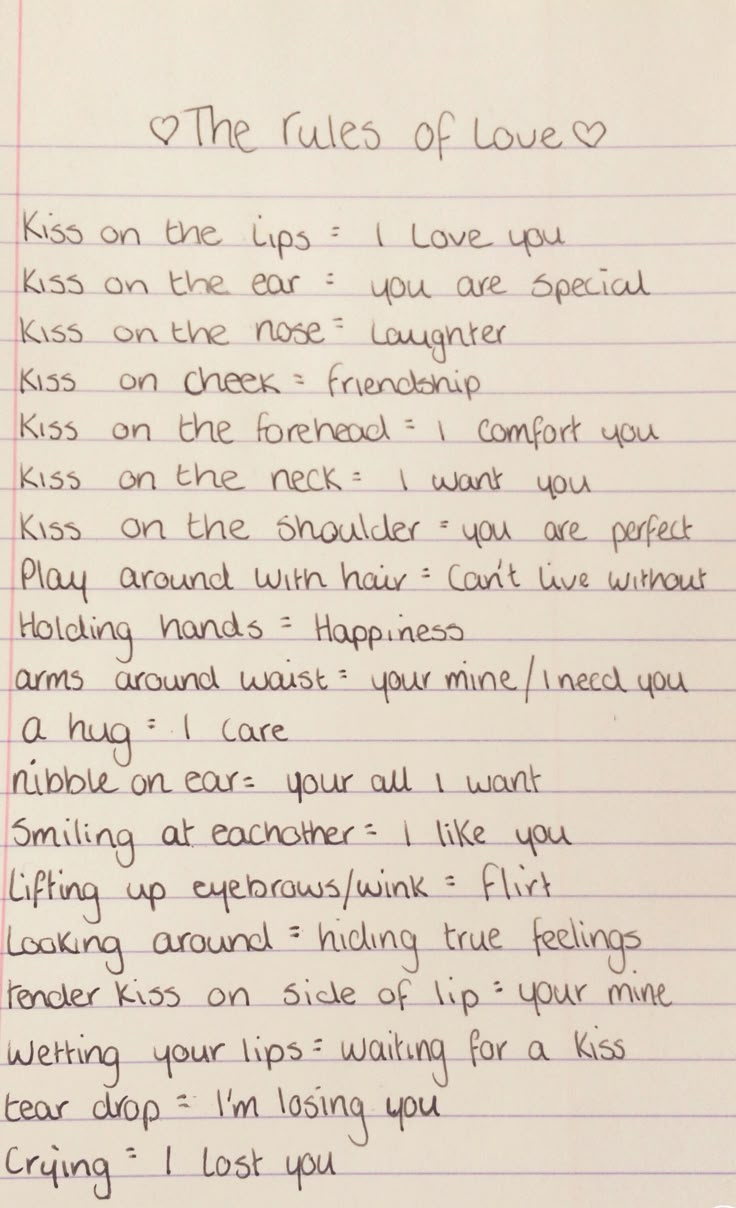 ♡The rules of Love♡
Kiss on the Lips = I Love you
Kiss on the ear = you are special
Kiss on the nose = Laughter
Kiss on cheek = friendship
Kiss on the forehead = I comfort you
Kiss on the neck = I want you
Kiss on the shoulder = you are perfect
Play around with hair = Can't live without
Holding hands = Happiness
arms around waist = your mine/I need you
a hug = I care
nibble on ear = your all I want
Smiling at eachother = I like you
Lifting up eyebrows/wink = flirt
Looking around = hiding true feelings
tender kiss on side of lip = your mine
Wetting your lips = waiting for a kiss
tear drop = I'm losing you
Crying = I lost you